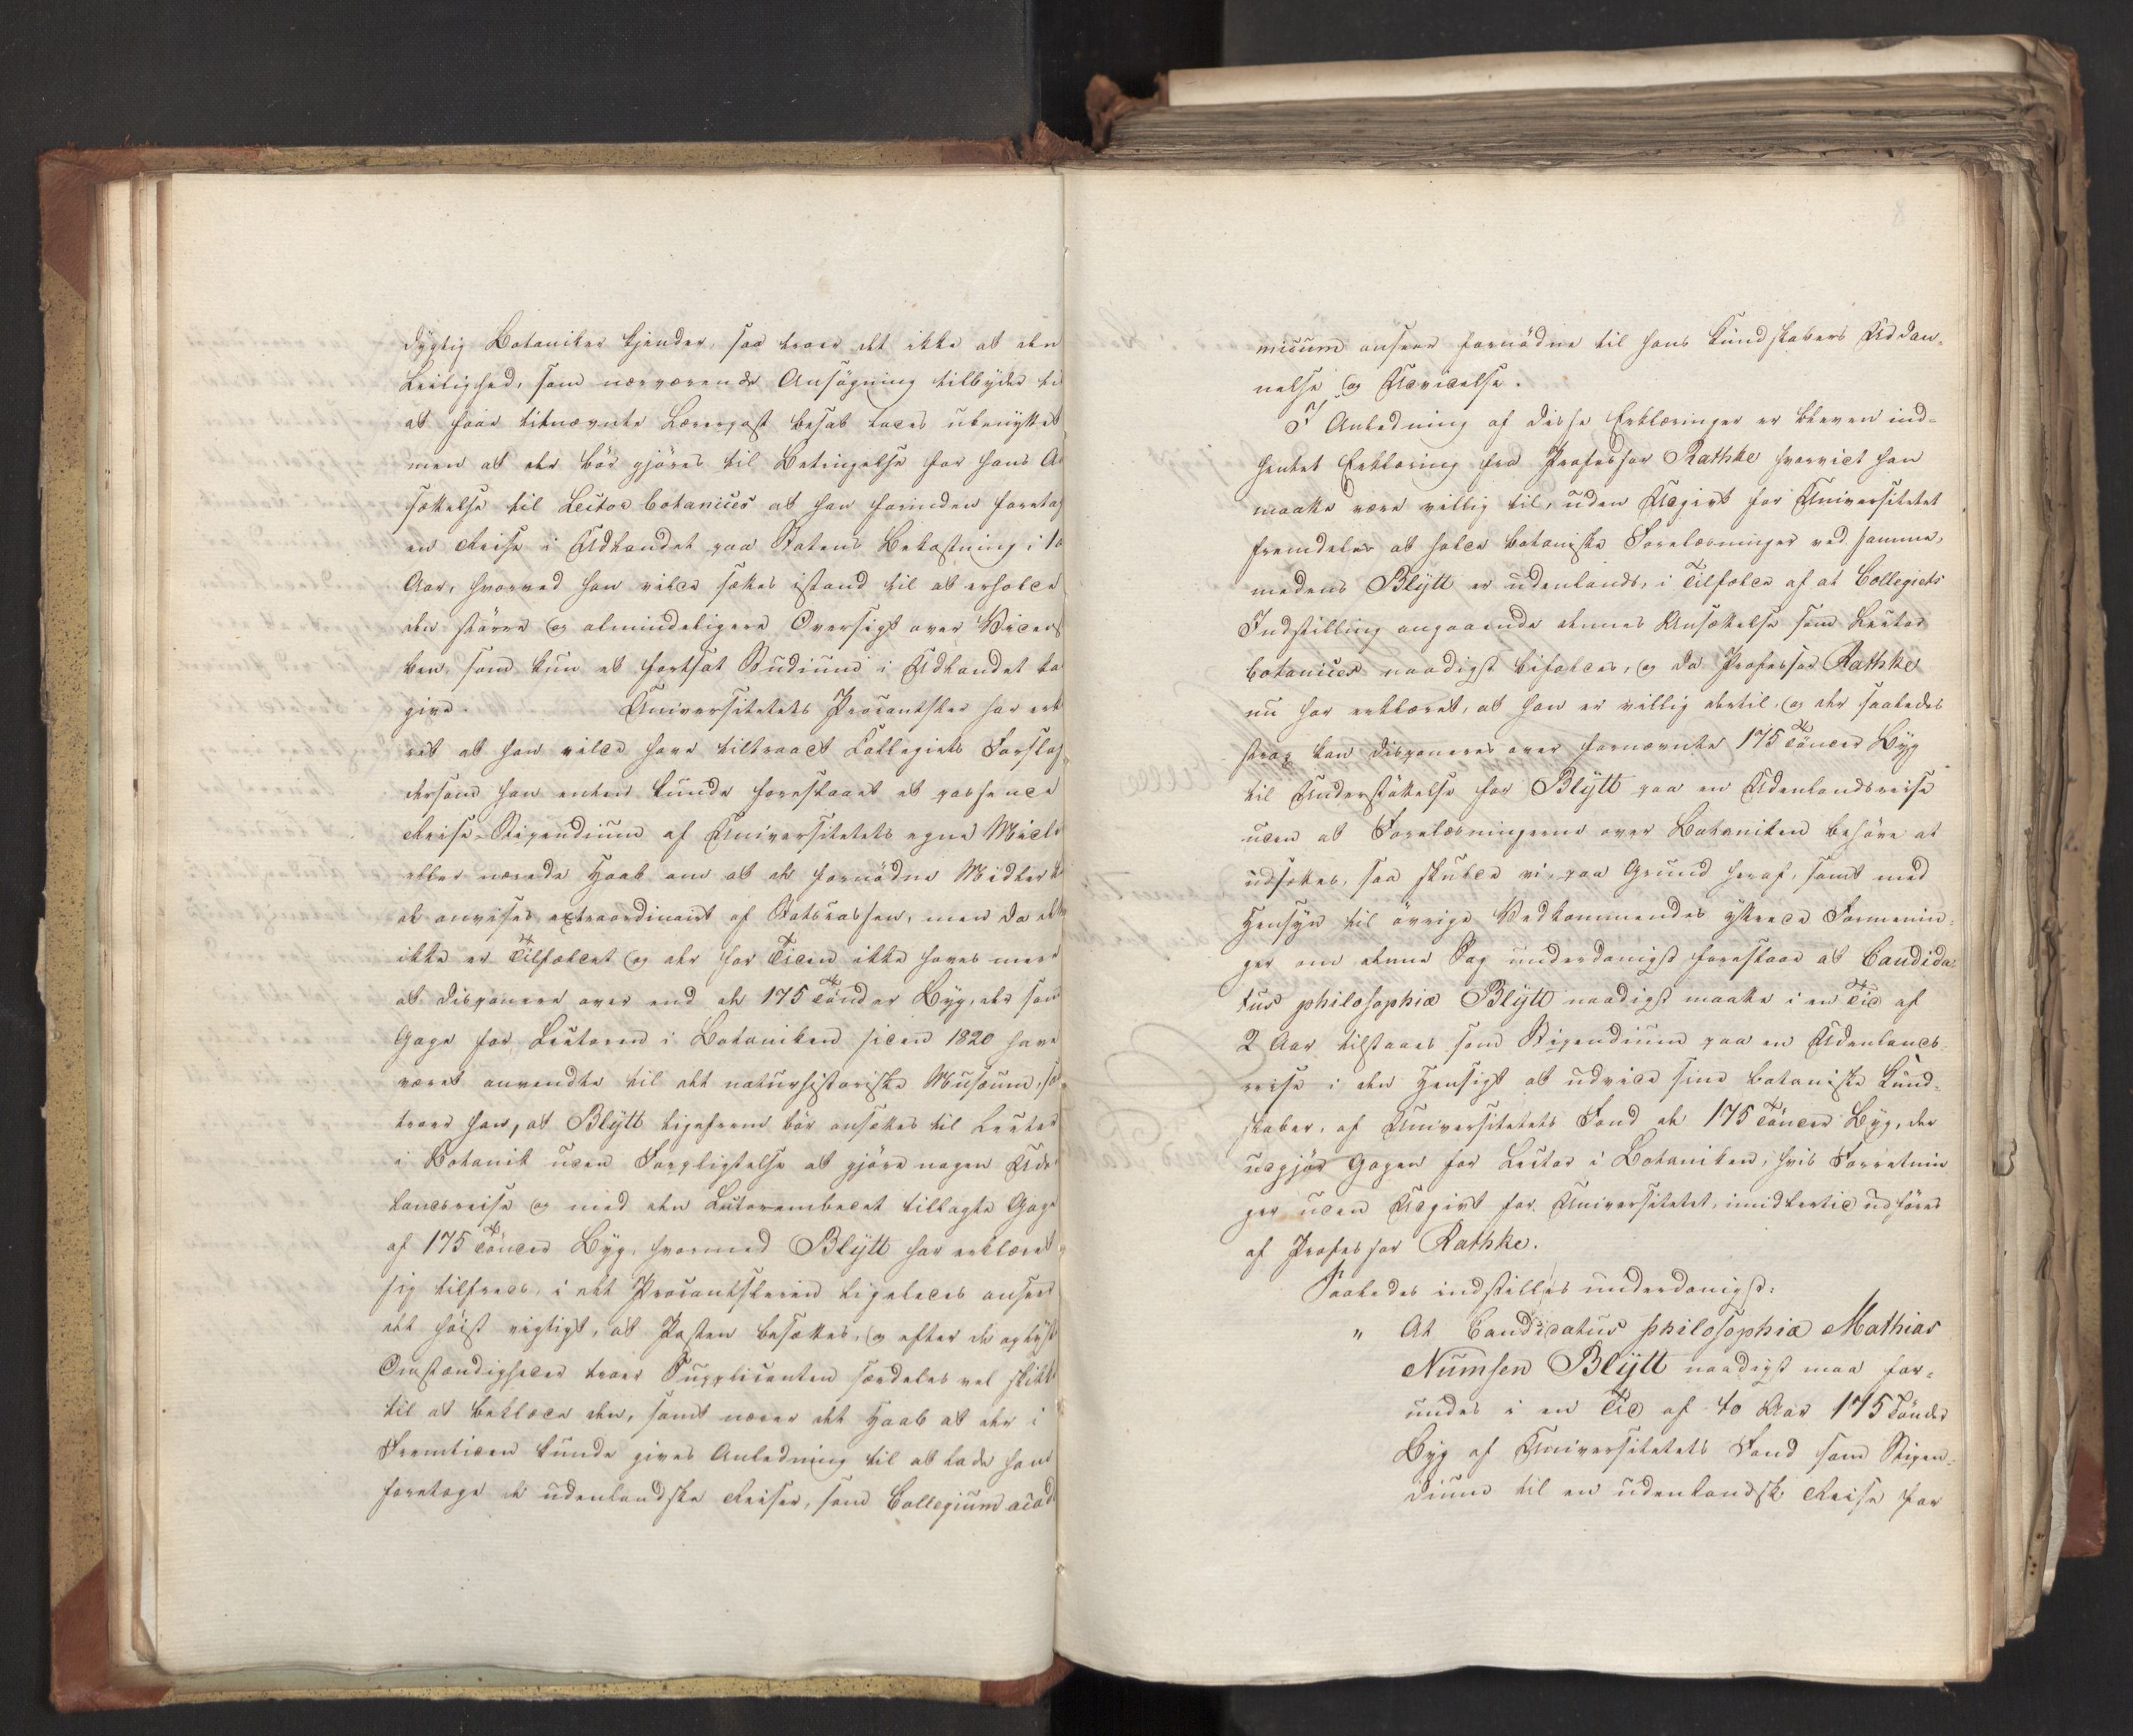 dygtig Botaniker kjender, saa troer det ikke at den
Leilighed, som nærværende Ansögning tilbyder til
at faae bemævnte Lærerpost besat lades ubenyttet
men at der bör gjöres til Betingelse for hans An
sættelse til Lector botanices at han forinden foretag
en Reise i Udlandet paa Statens Bekostning i to
Aar, hvorved han vilde sættes istand til at erholde
den större og almindeligere Oversigt over Videns
ben, som kun et fortsat Studium i Udlandet ka
give. Universitetets Procantsler har erk
ret at han vilde have tiltraadt Collegiets Forslag
dersom han enten kunde foreslaaet et passende
Reise-Stipendium af Universitetets egne Midle
eller nærede Haab om at de fornödne Midler
at anvises extraordinairt af Statscassen, men da det
ikke er Tilfældet og der for Tiden ikke haves mere
at disponere over end de 175 Tönder Byg, der som
Gage for Lectoren i Botaniken siden 1820 have
været anvendte til det naturhistoriske Musæum, så
troer han, at Blÿtt ligefrem bör ansættes til Lector
i Botanik uden Forpligtelse at gjöre nogen Uden
landsreise og med den Lectorembedet tillagte Gage
af 175 Tönder Byg, hvormed Blÿtt har erklæret
sig tilfreds, i det Procantsleren ligeledes anseer
det höist vigtigt, at Posten besættes, og efter de oplyste
Omstændigheder troer Supplicanten særdeles vel skikk
til at beklæde den, samt nærer det Haab at der i
Fremtiden kunde gives Anledning til at lade ham
foretage de udenlandske Reiser, som Collegium acad
micum anseer fornödne til hans Kundskabers Uddan-
nelse og Udvidelse.
I Anledning af disse Erklæringer er bleven ind-
hentet Erklæring fra Professor Rathke hvorvidt han
maatte være villig til, uden Udgivt for Universitetet
fremdeles at holde botaniske Forelæsninger ved samme,
medens Blÿtt er udenlands, i Tilfælde af at Collegiets
Indstilling angaaende dennes Ansættelse som Lector
botanices naadigst bifaldes, og da Professor Rathke
nu har erklæret, at han er villig dertil, og der saaledes
strax kan disponeres over fornævnte 175 Tönder Byg
til Understöttelse for Blÿtt paa en Udenlandsreise
uden at Forelæsningerne over Botaniken behöve at
udsættes, saa skulde vi, paa Grund heraf, samt med
Hensyn til övrige Vedkommendes yttrede Formenin-
ger om denne Sag underdanigst foreslaae at Candida-
tus philosophiæ Blÿtt naadigst maatte i en Tid af
2 Aar tilstaaes som Stipendium paa en Udenlands-
reise i den Hensigt at udvide sine botaniske Kund-
skaber, af Universitetets Fond de 175 Tönder Byg, der
udgjör Gagen for Lector i Botaniken, hvis Forretnin
ger uden Udgivt for Universitetet, imidlertid udföres
af Professor Rathke.
Saaledes indstilles underdanigst:
" At Candidatus philosophiæ Mathias
Numsen Blÿtt naadigst maa for-
undes i en Tid af to Aar 175 Tönder
Byg af Universitetets Fond som Stipen-
dium til en udenlandsk Reise for